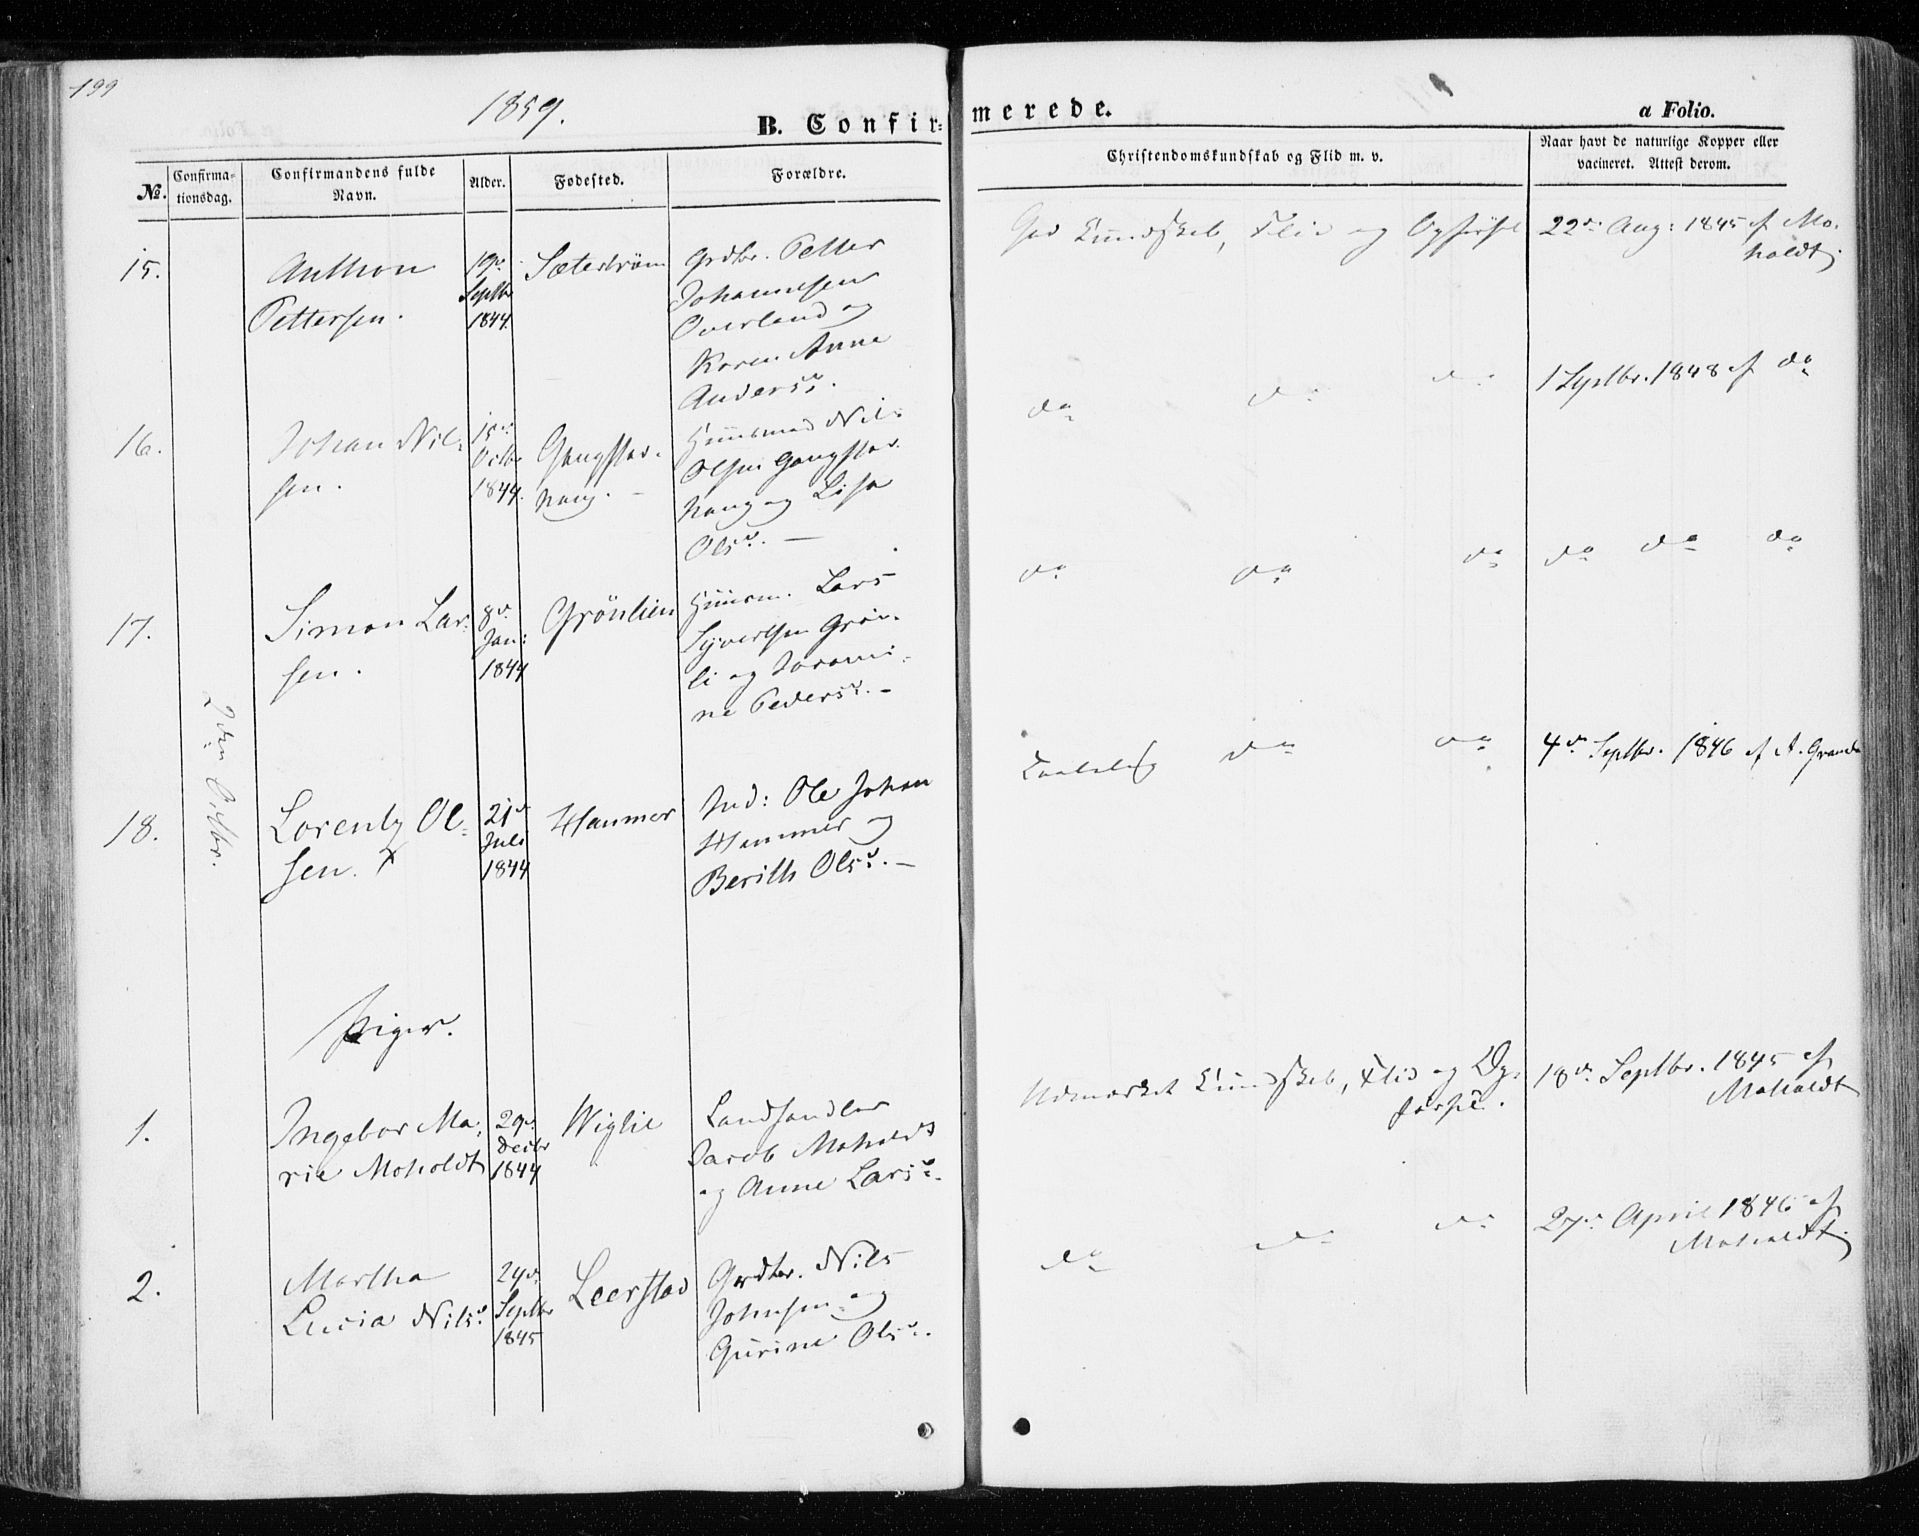 199
1859.
B. Confirmerede.
a Folio.
№. Confirmationsdag. Confirmandens fulde Navn. Alder. Fødested. Forældre. Christendomskundskab og Flid m. v. Naar havt de naturlige Kopper eller vacineret. Attest derom.
2den Octbr.
15.
Anthon
Pettersen.
19de
Septbr
1844.
Sæterstrøm
Grdbr. Petter
Johannesen
Overland og
Karen Anne
Andersd.
God Kundskab, Flid og Opførsel
22de Aug: 1845 af Mo-
holdt.
16.
Johan Nil-
sen.
15de
Octbr
1844.
Gangstad-
haug. –
Huusmand Nils
Olsen Gangstad-
haug og Lisa
Olsd. –
do do do
1 Septbr. 1848 af do
17.
Simon Lar-
sen.
8de
Jan:
1844
Grönlien
Huusm. Lars
Syvertsen Grön-
li og
Pedersd. –
do do do
do do do
18.
Lorents Ol-
sen. x
21de
Juli
1844
Hammer
Ind: Ole Johan
Hammer og
Berith Olsd. –
do do
4de Septbr. 1846 af A. Grande
Piger.
1.
Ingebor Ma-
rie Moholdt
29de
Decbr
1844
Wiglie
Landhandler
Jacob Moholdt
og Anne Larsd.
Udmærket Kundskab, Flid og Op-
førsel.
18de Septbr. 1845 af
Moholdt
2.
Martha
Lucia Nilsd.
24de
Septbr
1845
Leerstad
Grdbr. Nils
Johnsen og
Gurine Olsd.
do do do
27de April 1846 af
Moholdt.